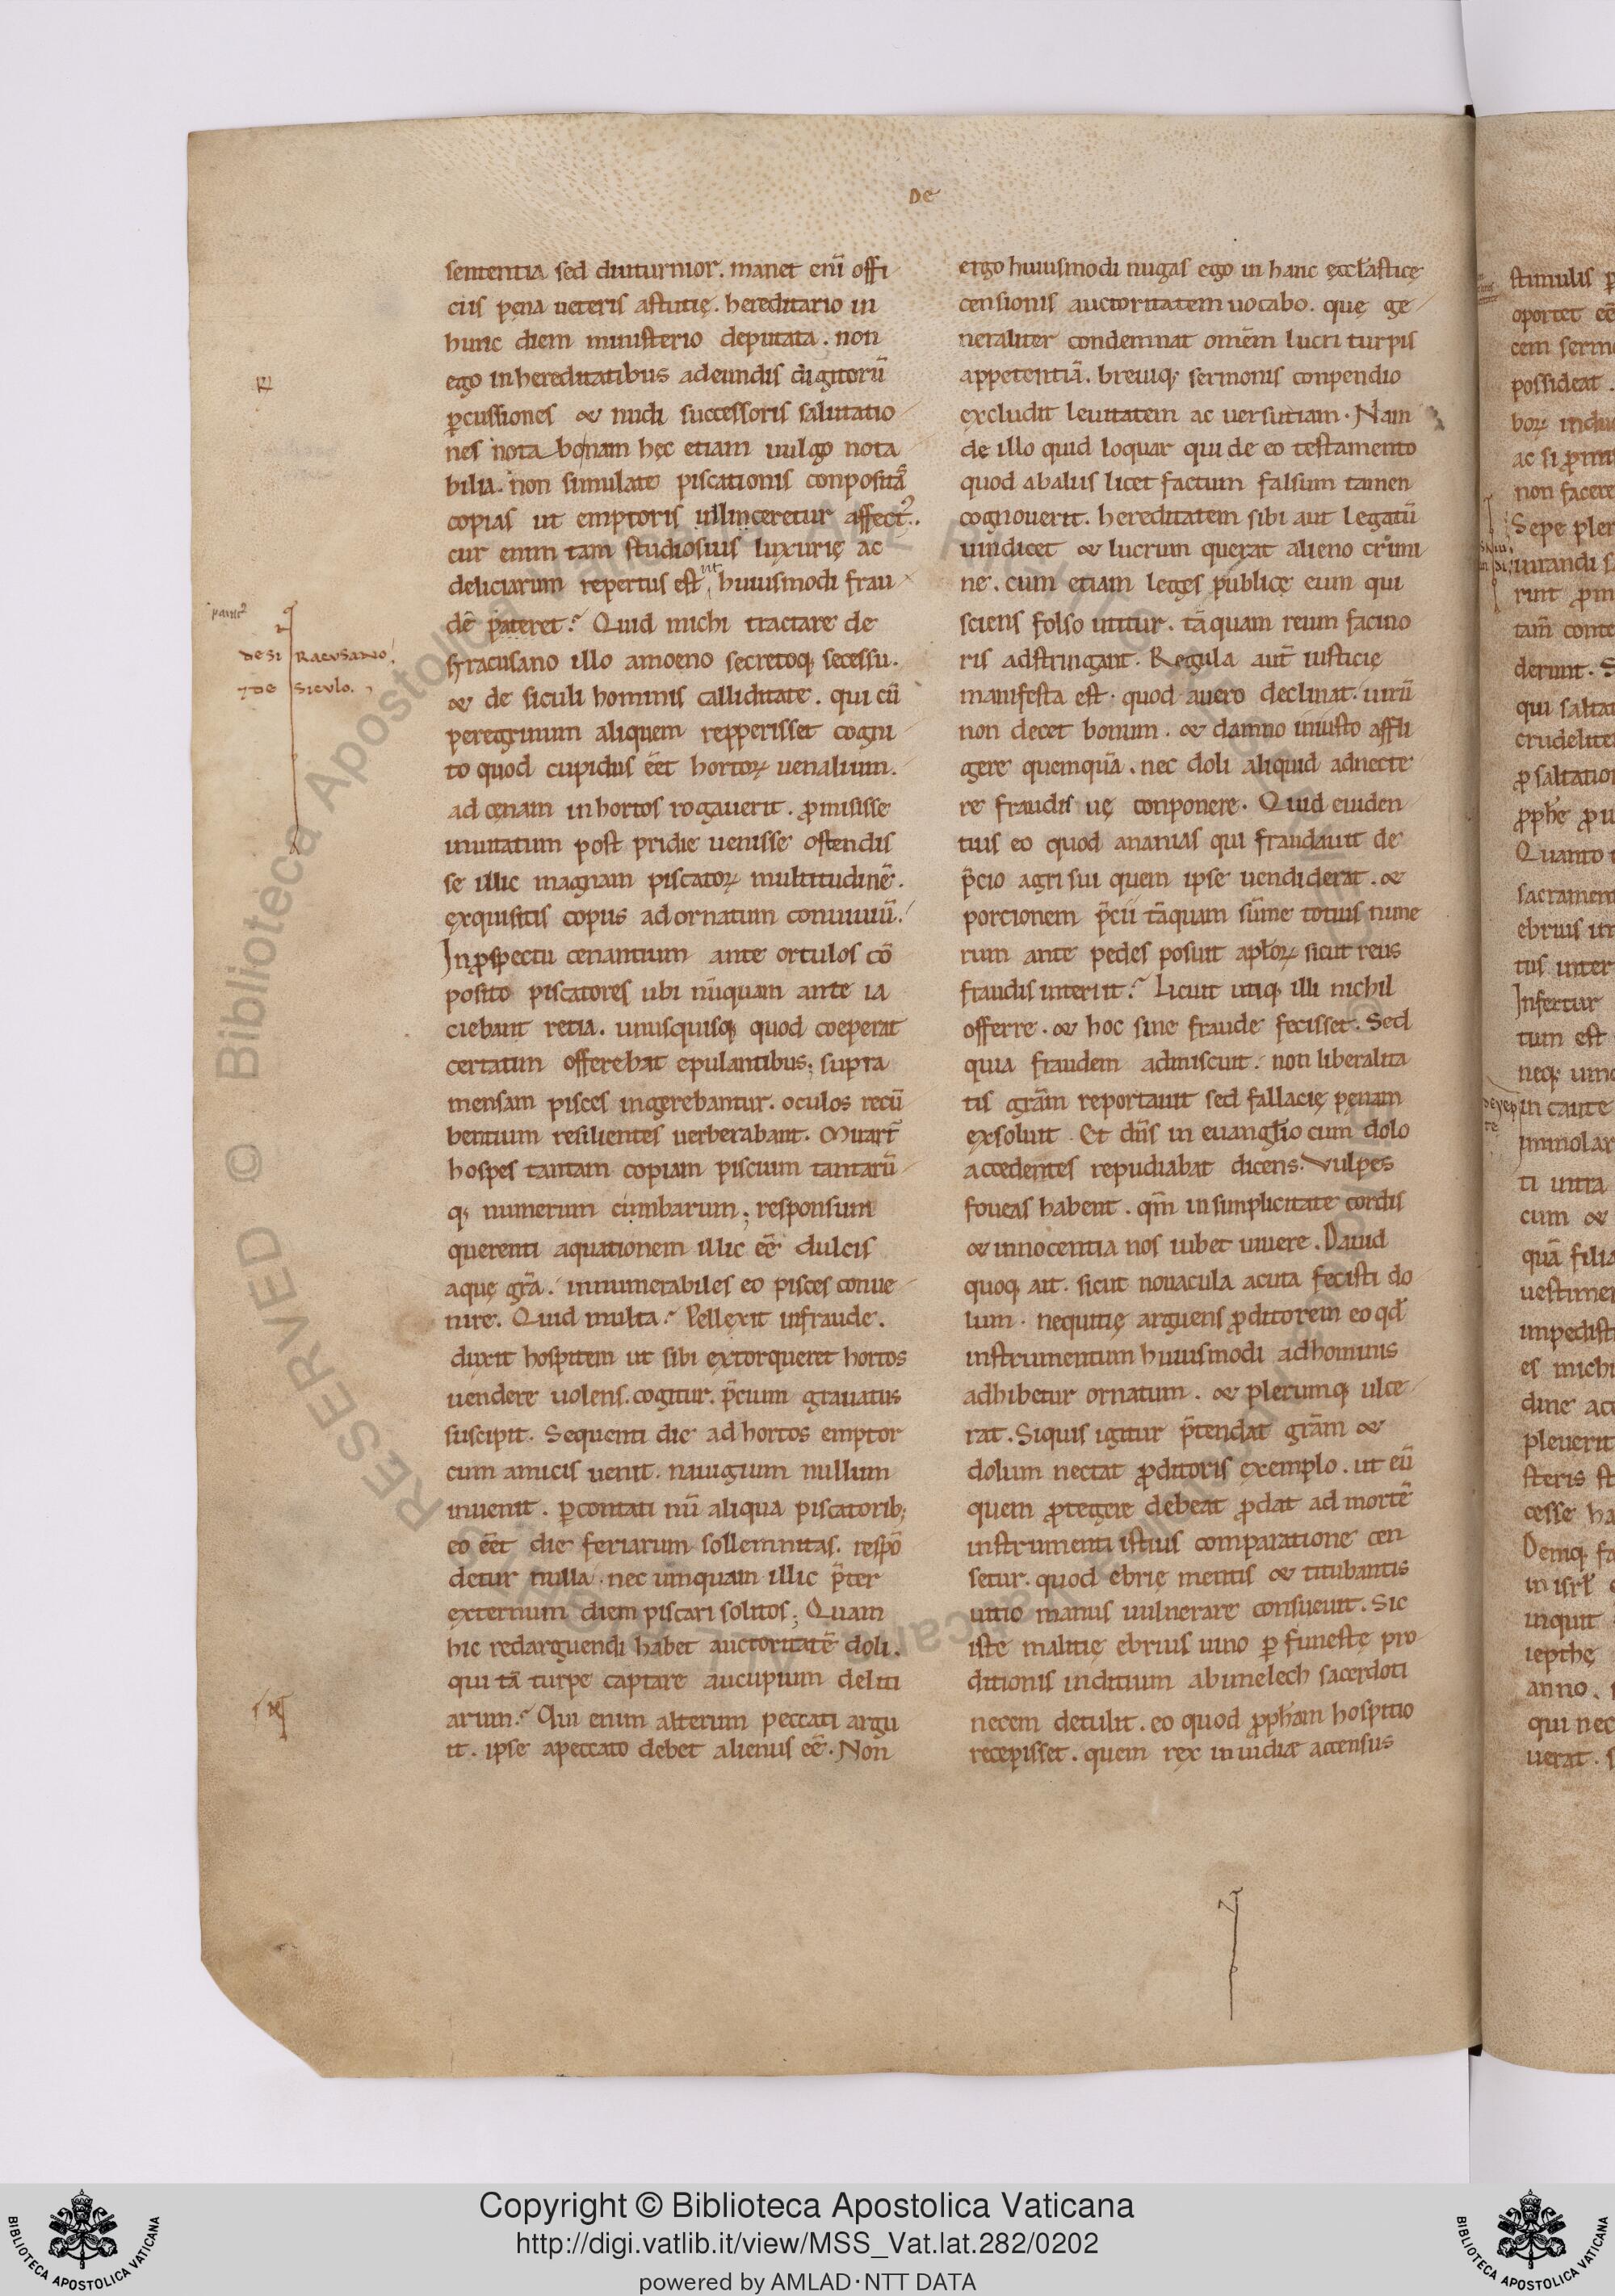 De
sententia sed diuturnior. manet enī offi
ciis pęna ueteris astutię. hereditario in
hunc diem ministerio deputata. non
ego in hereditatibus adeundis digitorū
p̱cussiones & nudi successoris salutatio
nes nota bonam hęc etiam uulgo nota
bilia. non simulate piscationis conpositā
copias ut emptoris illinceretur affect'.
cur enim tam studiosius luxurię ac
deliciarum repertus est ut huiusmodi frau
dē pateret? Quid michi tractare de
syracusano illo amoeno secretoq; secessu.
& de siculi hominis calliditate. qui cū
peregrinum aliquem repperisset cogni
to quod cupidus ēet hortoꝝ uenalium.
ad cęnam in hortos rogauerit. ꝓmisisse
inuitatum post pridie uenisse ostendis
se illic magnam piscatoꝝ multitudinē.
exquisitis copiis ad ornatum conuiuiū.
In ꝓspectu cenantium ante ortulos cō
posito piscatores ubi nūquam ante ia
ciebant retia. unusquisq; quod coeperat
certatim offerebat epulantibus; supra
mensam pisces ingerebantur. oculos recū
bentium resilientes uerberabant. Mirart̄
hospes tantam copiam piscium tantarū
q; numerum cimbarum; responsum
querenti aquationem illic eē dulcis
aquę gr̄a. innumerabiles eo pisces conue
nire. Quid multa? Pellexit in fraude.
duxit hospitem ut sibi extorqueret hortos
uendere uolens. cogitur. p̄cium grauatus
suscipit. Sequenti die ad hortos emptor
cum amicis uenit. nauigium nullum
inuenit. ꝑcontati nū aliqua piscatorib;
eo ēet die feriarum sollemnitas. respō
detur nulla. nec umquam illic p̄ter
externum diem piscari solitos; Quam
hic redarguendi habet auctoritatē doli.
qui tā turpe captare aucupium deliti
arum? Qui enim alterum peccati argu
it. ipse a peccato debet alienus eē. Non
ergo huiusmodi nugas ego in hanc ęccl'asticę
censionis auctoritatem uocabo. que ge
neraliter condemnat omēm lucri turpis
appetentiā. breuiq; sermonis conpendio
excludit leuitatem ac uersutiam. Nam
de illo quid loquar qui de eo testamento
quod ab aliis licet factum falsum tamen
cognouerit. hereditatem sibi aut legatū
uindicet & lucrum querat alieno crimi
ne. cum etiam leges publice eum qui
sciens falso utitur. tā quam reum facino
ris adstringant. Regula aut̄ iusticię
manifesta est. quod a uero declinat. uirū
non decet bonum. & damno iniusto affli
gere quemquā. nec doli aliquid adnecte
re fraudis uę conponere. Quid euiden
tius eo quod ananias qui fraudauit de
p̄cio agri sui quem ipse uendiderat. &
porcionem p̄cii tāquam sūme totius nume
rum ante pedes posuit aploꝝ sicut reus
fraudis interiit? Licuit utiq; illi nichil
offerre. & hoc sine fraude fecisset. Sed
quia fraudem admiscuit. non liberalita
tis grām reportauit sed fallacię pęnam
exsoluit. Et dn̄s in euanglīo cum dolo
accedentes repudiabat dicens. Vulpes
foueas habent. qm̄ in simplicitate cordis
& innocentia nos iubet uiuere. Dauid
quoq; ait. sicut nouacula acuta fecisti do
lum. nequitię arguens ꝓditorem eo qd̄
instrumentum huiusmodi ad hominis
adhibetur ornatum. & plerumq; ulce
rat. Siquis igitur p̄tendat grām &
dolum nectat ꝓditoris exemplo. ut eū
quem ꝓtegere debeat ꝓdat ad mortē
instrumenti istius comparatione cen
setur. quod ebrię mentis & titubantis
uitio manus uulnerare consueuit. Sic
iste malitię ebrius uino ꝑ funestę pro
ditionis inditium abimelech sacerdoti
necem detulit. eo quod ꝓpham hospitio
recepisset. quem rex inuidiæ accensus
De si Racusano.
⁊ De Siculo.
Copyright © Biblioteca Apostolica Vaticana
http://digi.vatlib.it/view/MSS_Vat.lat.282/0202
powered by AMLAD·NTT DATA
BIBLIOTECA APOSTOLICA VATICANA
BIBLIOTECA APOSTOLICA VATICANA